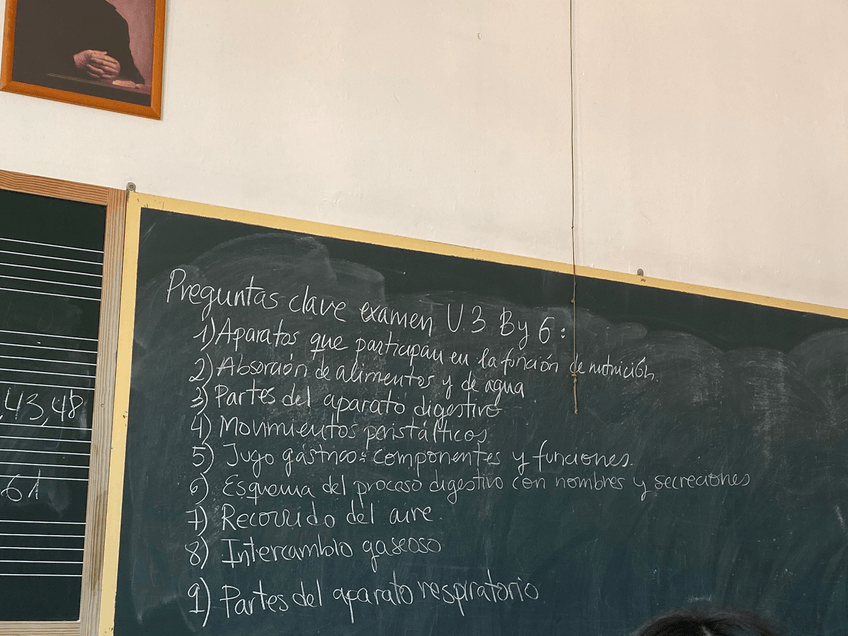 Preguntas clave examen U.3 By 6:
1) Aparatos que participan en la función de nutrición.
2) Absorción de alimentos y de agua
3) Partes del aparato digestivo
4) Movimientos peristálticos
5) Jugo gástrico: componentes y funciones.
6) Esquema del proceso digestivo con nombres y secreciones
7) Recorrido del aire.
8) Intercambio gaseoso
9) Partes del aparato respiratorio
,43,48
61